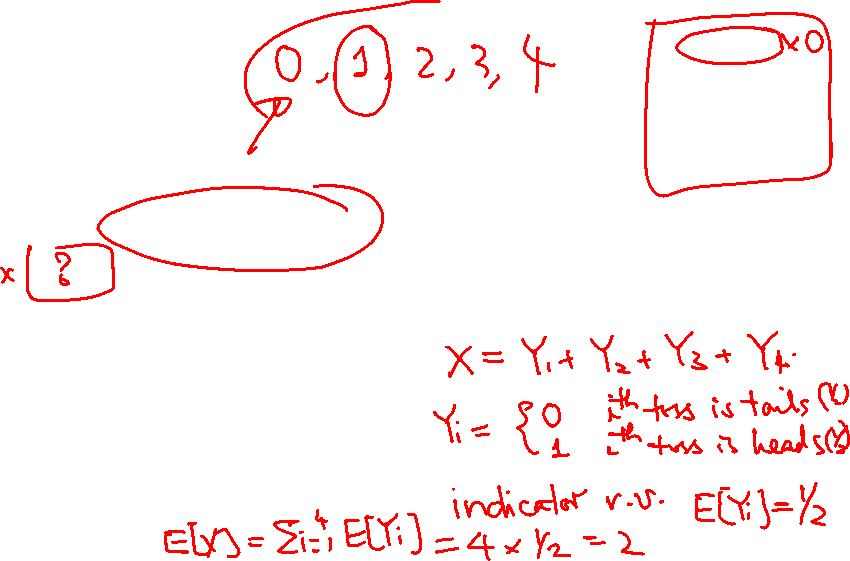 0, 1, 2, 3, 4
x 0
x ?
X = Y₁ + Y₂ + Y₃ + Y₄.
Yᵢ = { 0 iᵗʰ toss is tails (½)
1 iᵗʰ toss is heads (½)
indicator r.v. E[Yᵢ] = ½
E[X] = Σᵢ₌₁⁴ E[Yᵢ] = 4 × ½ = 2